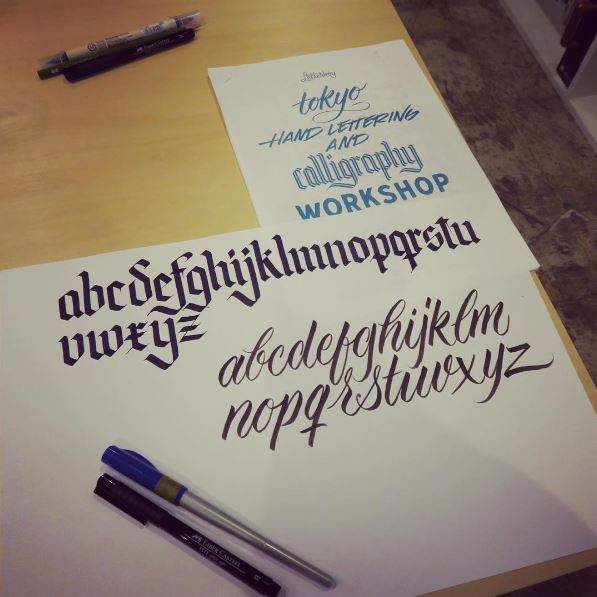 Letterboy
tokyo
HAND LETTERING
AND
calligraphy
WORKSHOP
abcdefghijklmnopqrstu
vwxyz
abcdefghijklm
nopqrstuvwxyz
FABER-CASTELL